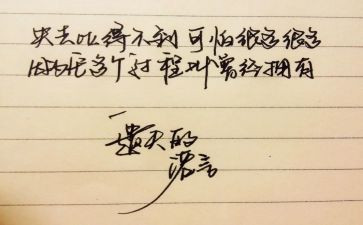 失去比得不到可怕很多很多
因为它多个过程叫曾经拥有
的
言